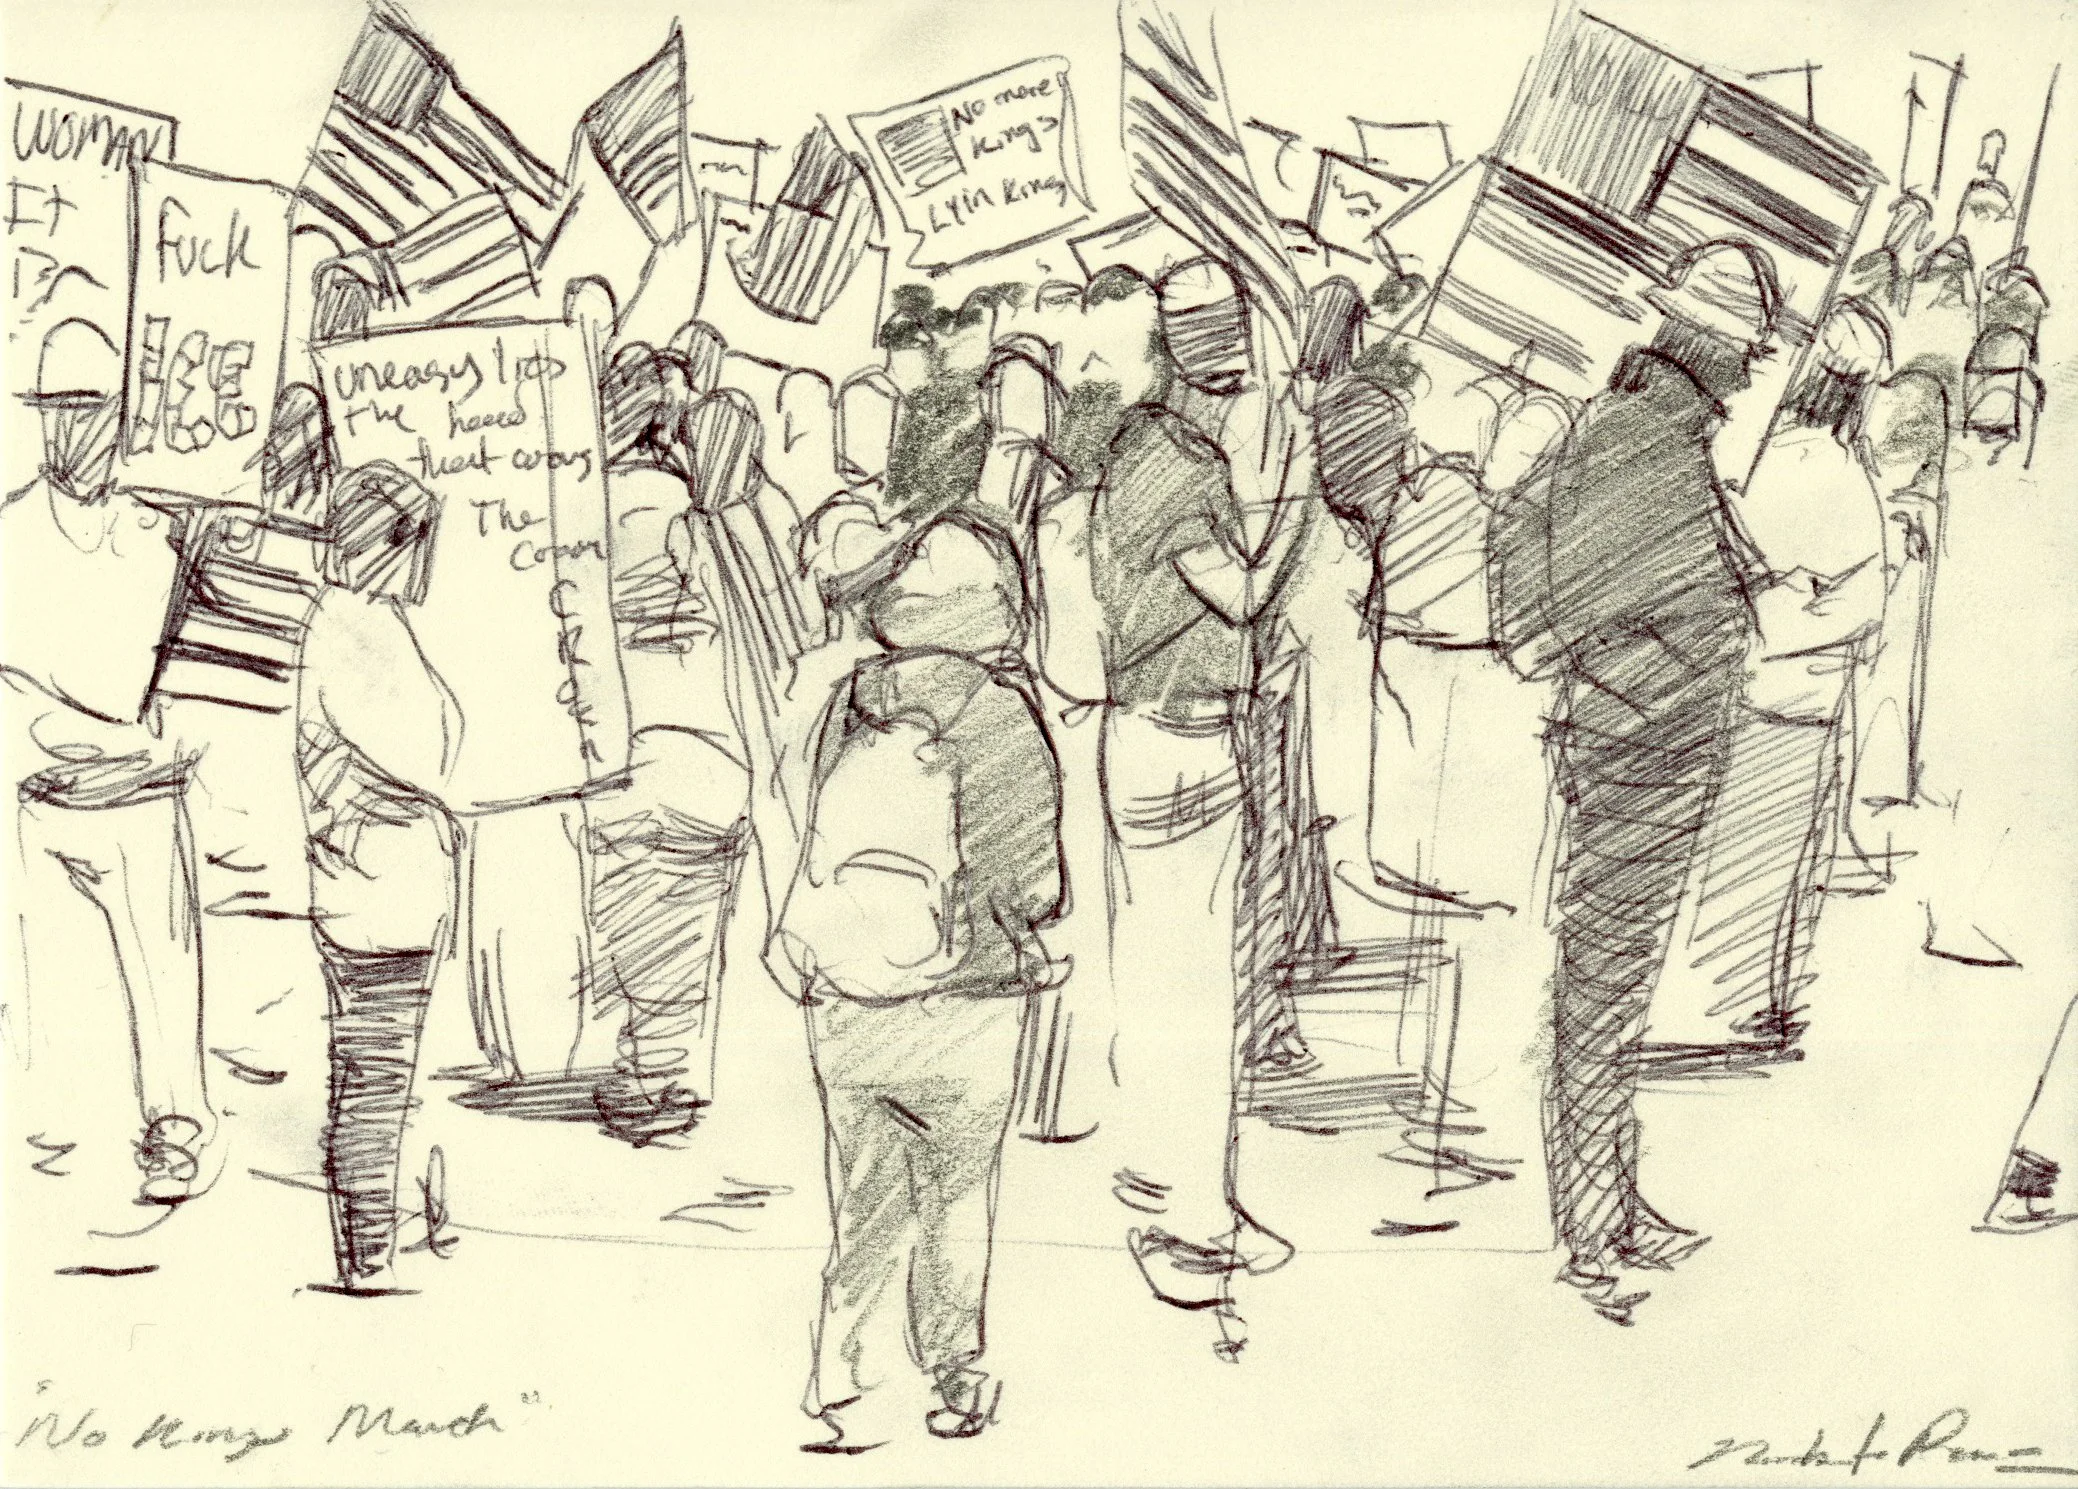 WOMAN
It
Fuck
No more
Kings
Lyin Kings
uneasy lies
The head
that wears
The
Crown
CROWN
"No Kings March"